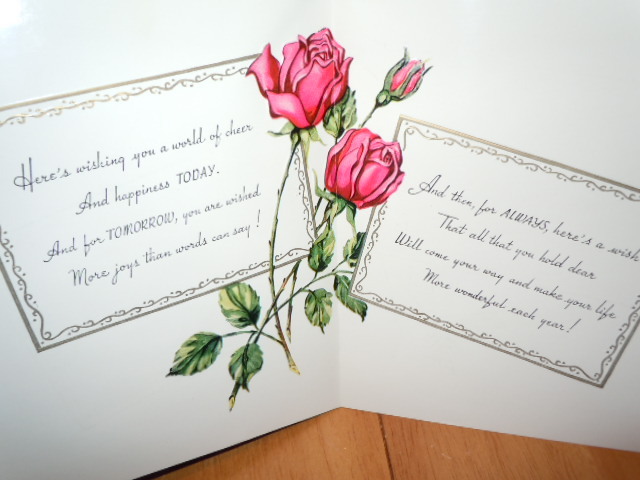 Here's wishing you a world of cheer
And happiness TODAY.
And for TOMORROW, you are wished
More joys than words can say!
And then, for ALWAYS, here's a wish
That all that you hold dear
Will come your way and make your life
More wonderful each year!